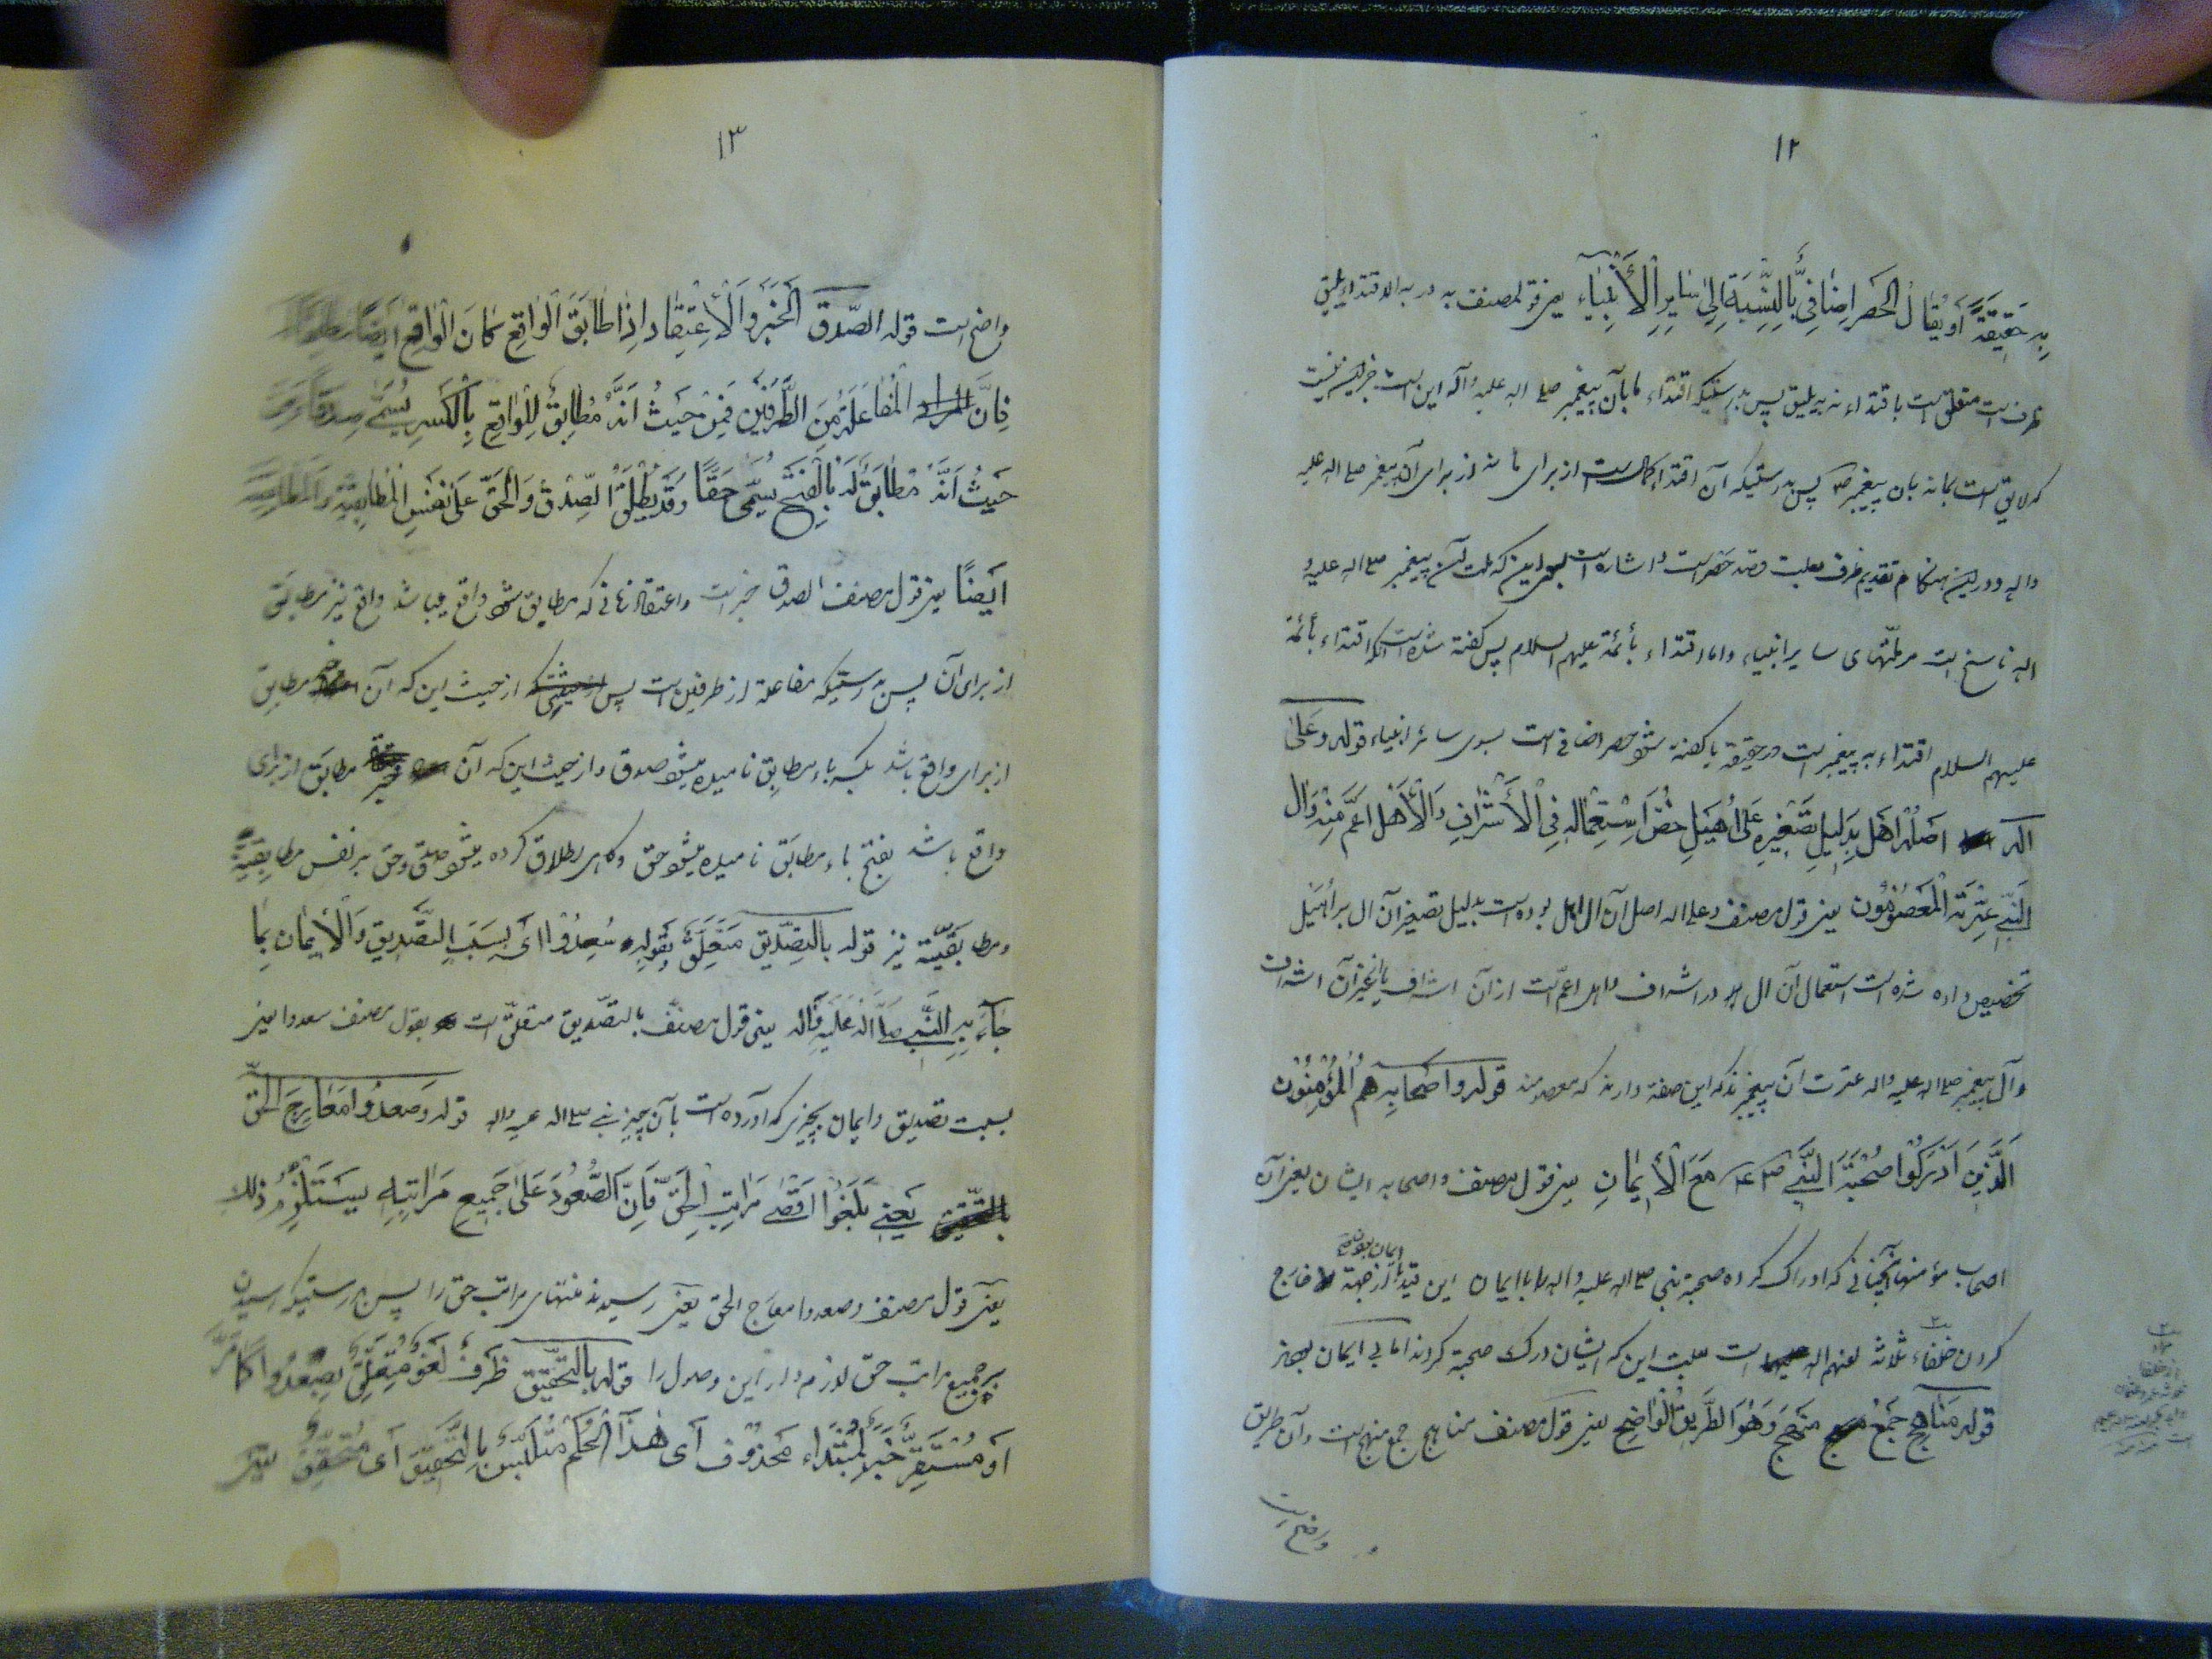 ۱۲
به حَقِیقَةً اَو یُقٰالُ الحَصَر اِضٰافِیٌّ بِالنِّسبَةِ اِلیٰ سٰایِرِ الْأَنْبِیٰاءِ یعنی قول مصنف به در به الاقتداء یلیق
ظرفست متعلق است باقتداء نه به یلیق پس بدرستیکه اقتداء ما بآن پیغمبر صلی اله علیه و آله این است جز این نیست
که لایق است بما نه بان پیغمبر ص پس بدرستیکه آن اقتداء کمالست از برای ما نه از برای آن پیغمبر صلی اله علیه
واله و در این هنگام تقدیم ظرف بعلت قصد حصر است و اشاره است بسوی این که ملت آن پیغمبر صلی اله علیه و
اله ناسخ است مر ملتهای سایر انبیاء و اما اقتداء بأئمة علیهم السلام پس گفته شده است که اقتداء بأئمة
علیهم السلام اقتداء به پیغمبر است در حقیقة یا گفته شود حصر اضافی است بسوی سائر انبیاء قوله وعَلیٰ
اله اصلُهُ اَهل بِدَلیلِ تَصْغیرِهِ عَلیٰ اُهَیلِ خُصَّ اسْتِعْمٰالُهُ فِی الْأَشْرٰافِ وَالْأَهْل اَعَمُّ مِنهُ وَال
النَّبِیِّ عِتْرَتُهُ الْمَعْصُومُونَ یعنی قول مصنف وعلی اله اصل آن ال اهل بوده است بدلیل تصغیر آن ال بر أُهَیل
تخصیص داده شده است استعمال آن ال در اشراف و اهل اعمّ است از آن اشراف یا غیر آن اشراف
وآل پیغمبر صلی اله علیه واله عترت آن پیغمبرند که این صفة دارند که معصومند قوله واصحابِهِ هُمُ الْمُؤْمِنُونَ
الَّذِینَ اَدْرَکُوا صُحْبَةَ النَّبِیِّ ص مَعَ الْأیمٰانِ یعنی قول مصنف واصحابه ایشان یعنی آن
اصحاب مؤمنها آنچنانی که ادراک کرده صحبة نبی صلی اله علیه واله را با ایمان این قید با ایمان از جهة خارج
کردن خلفاء ثلاثه لعنهم اله است بعلت این که ایشان درک صحبة کردند اما بی ایمان بودند
قوله مَنٰاهِج جَمعُ مَنهَج وَهُوَ الطَّریقُ الْواضِح یعنی قول مصنف مناهج جمع منهج است و آن طریق
واضح است
۱۳
واضح است قوله الصّدق الخَبَر وَالْأِعْتِقٰاد اِذٰا طٰابَقَ الْوٰاقِع کٰانَ الْوٰاقِع اَیضًا مُطٰابِقًا لَهُ
فَاِنَّ الْمُفٰاعَلَةَ مِنَ الطَّرَفَیْنِ فَمِنْ حَیثُ اَنَّهُ مُطٰابِقٌ لِلْوٰاقِعِ بِالْکَسْرِ یُسَمّیٰ صِدقًا وَمِن
حَیثُ اَنَّهُ مُطٰابَقٌ لَهُ بِالْفَتْحِ یُسَمّیٰ حَقًّا وَقَدْ یُطْلَقُ الصِّدْقُ وَالْحَقُّ عَلیٰ نَفْسِ الْمُطٰابِقِیَّةِ وَالْمُطٰابَقِیَّةِ
اَیضًا یعنی قول مصنف الصدق خبر است و اعتقاد زمانی که مطابق شود واقع میباشد واقع نیز مطابق
از برای آن پس بدرستیکه مفاعلة از طرفین است پس از حیث این که آن مطابق
از برای واقع باشد بکسر باء مطابق نامیده میشود صدق و از حیث این که آن خبر مطابق از برای
واقع باشد بفتح باء مطابَق نامیده میشود حق وگاهی اطلاق کرده میشود صدق وحق بر نفس مطابِقِیّة
ومطابَقِیّة نیز قوله بالتصّدیق مُتَعَلِّقٌ بِقَولِهِ سُعِدُوا ای بِسَبَبِ التَّصْدِیقِ وَالْأیمٰانِ بِمٰا
جٰآءَ بِهِ النَّبِیُّ صلی اله عَلَیهِ وَآله یعنی قول مصنّف بالتصّدیق متعلّق است بقول مصنف سعدوا یعنی
بسبب تصدیق وایمان بچیزی که آورده است بآن چیز نبی صلی اله علیه واله قوله وصَعدُوا مَعٰارِجَ الحَقِّ
بالتّحقیق یَعنِی بَلَغُوا اَقْصیٰ مَرٰاتِبِ الْحَقِّ فَاِنَّ الصُّعُودَ عَلیٰ جَمِیعِ مَرٰاتِبِهِ یَستَلْزِمُ ذٰلِکَ
یعنی قول مصنف وصعدوا معارج الحق یعنی رسیدند منتهای مراتب حق را پس بدرستیکه رسیدن
بر جمیع مراتب حق لازم دارد این وصول را قوله بالتحقیق ظَرفٌ لَغوٌ مُتَعَلِّقٌ بِصَعَدُوا کَمٰا مَرَّ
اَو مُسْتَقَرٌّ خَبَرٌ لِمُبْتَداء مَحذُوف اَی هٰذَا الْحُکْم مُتَلَبِّسٌ بِالتَّحْقیقِ اَی مُتَحَقِّقٌ یعنی